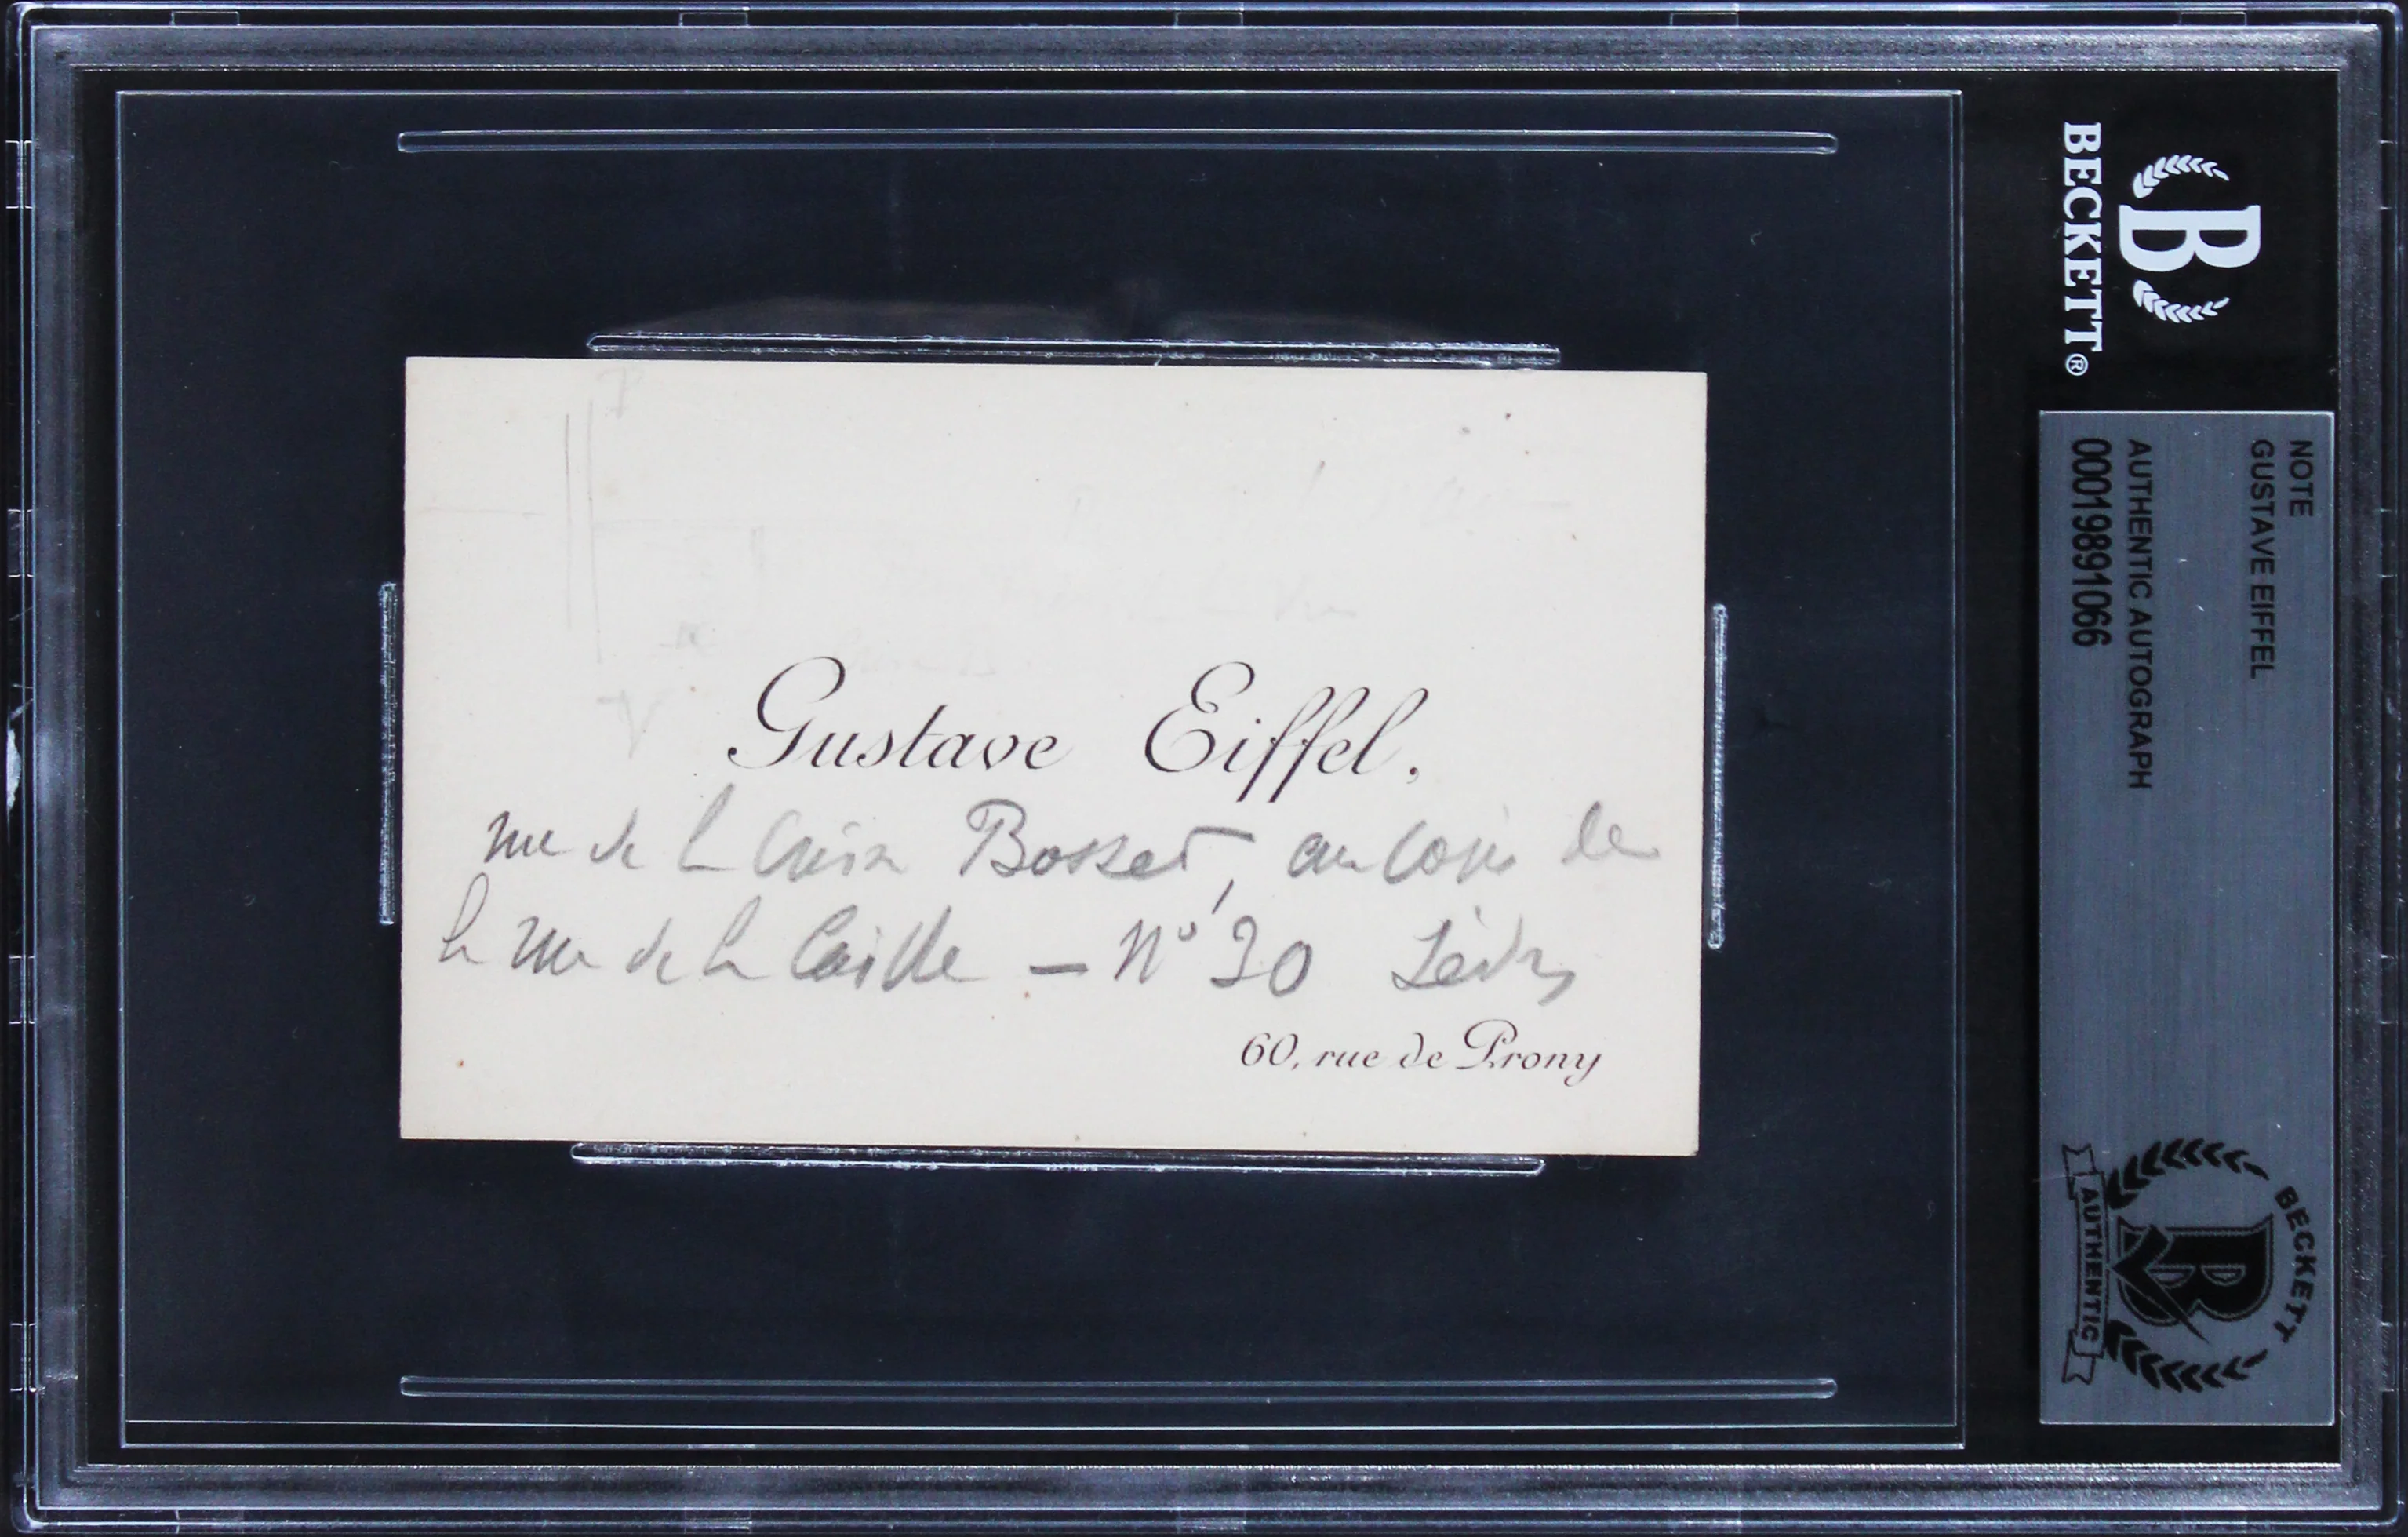 Gustave Eiffel.
rue de la Croix Bosset, au coin de
la rue de la Caille — N° 30 Sèvres
60, rue de Prony
BECKETT®
NOTE
GUSTAVE EIFFEL
AUTHENTIC AUTOGRAPH
00019891066
BECKETT
AUTHENTIC